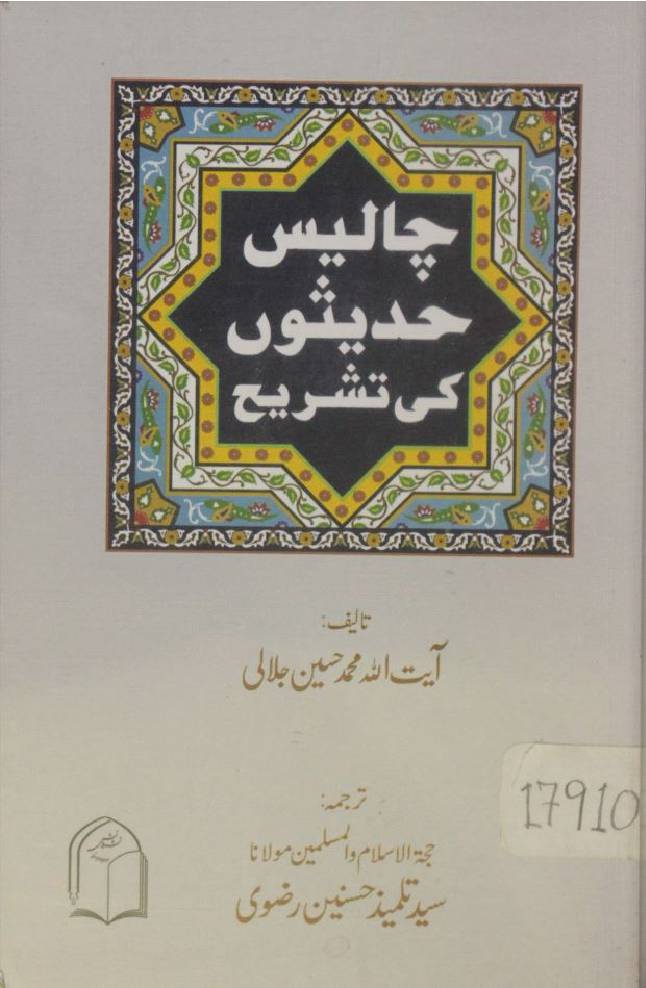 چالیس
حدیثوں
کی تشریح
تالیف:
آیت اللہ محمد حسین جلالی
17910
ترجمہ:
حجۃ الاسلام والمسلمین مولانا
سید تلمیذ حسنین رضوی